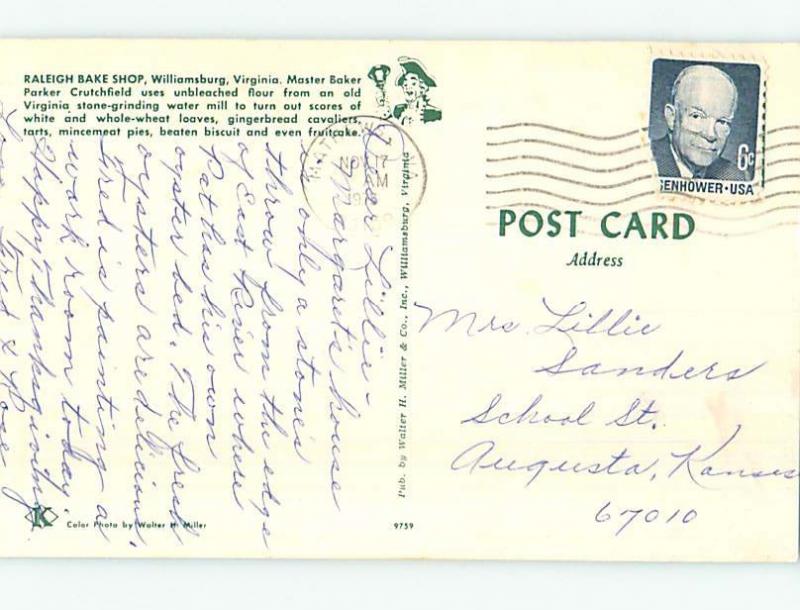 RALEIGH BAKE SHOP, Williamsburg, Virginia. Master Baker
Parker Crutchfield uses unbleached flour from an old
Virginia stone-grinding water mill to turn out scores of
white and whole-wheat loaves, gingerbread cavaliers,
tarts, mincemeat pies, beaten biscuit and even fruitcake.
Dear Lillie-
Margaret's house
is only a stones
throw from the edge
of East River where
Pat has his own
oyster bed. The fresh
oysters are delicious.
Fred is painting a
work room today.
Happy Thanksgiving.
Love, Fred & Rose
K
Color Photo by Walter H. Miller
9759
Pub. by Walter H. Miller & Co., Inc., Williamsburg, Virginia
NOV 17
AM
6c
ENHOWER·USA
POST CARD
Address
Mrs. Lillie
Sanders
School St.
Augusta, Kansas
67010